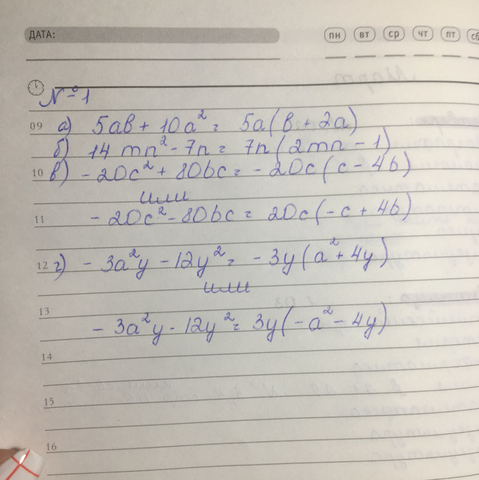 ДАТА: пн вт ср чт пт сб
№1
09 а) 5ab + 10a² = 5a(b + 2a)
б) 14 mn² - 7n = 7n(2mn - 1)
10 в) - 20c² + 80bc = - 20c(c - 4b)
или
11 - 20c² - 80bc = 20c(-c + 4b)
12 г) - 3a²y - 12y² = - 3y(a² + 4y)
или
13
- 3a²y - 12y² = 3y(-a² - 4y)
14
15
16